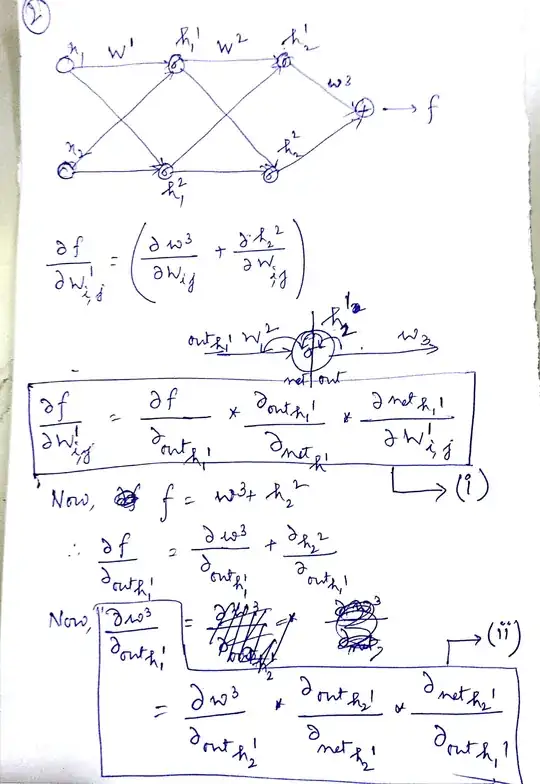 2
x₁ W¹ h₁¹ W² h₂¹
w³
+ → f
x₂ h₁² h₂²
∂f/∂W¹ᵢ,ⱼ = (∂w³/∂Wᵢⱼ + ∂h₂²/∂Wᵢ,ⱼ)
h₂¹
out h₁¹ W² σ w₃
net out
∂f/∂W¹ᵢ,ⱼ = ∂f/∂out h₁¹ * ∂out h₁¹/∂net h₁¹ * ∂net h₁¹/∂W¹ᵢ,ⱼ
→ (i)
Now, f = w³ + h₂²
∴ ∂f/∂out h₁¹ = ∂w³/∂out h₁¹ + ∂h₂²/∂out h₁¹
Now, ∂w³/∂out h₁¹ =
→ (ii)
= ∂w³/∂out h₂¹ * ∂out h₂¹/∂net h₂¹ * ∂net h₂¹/∂out h₁¹